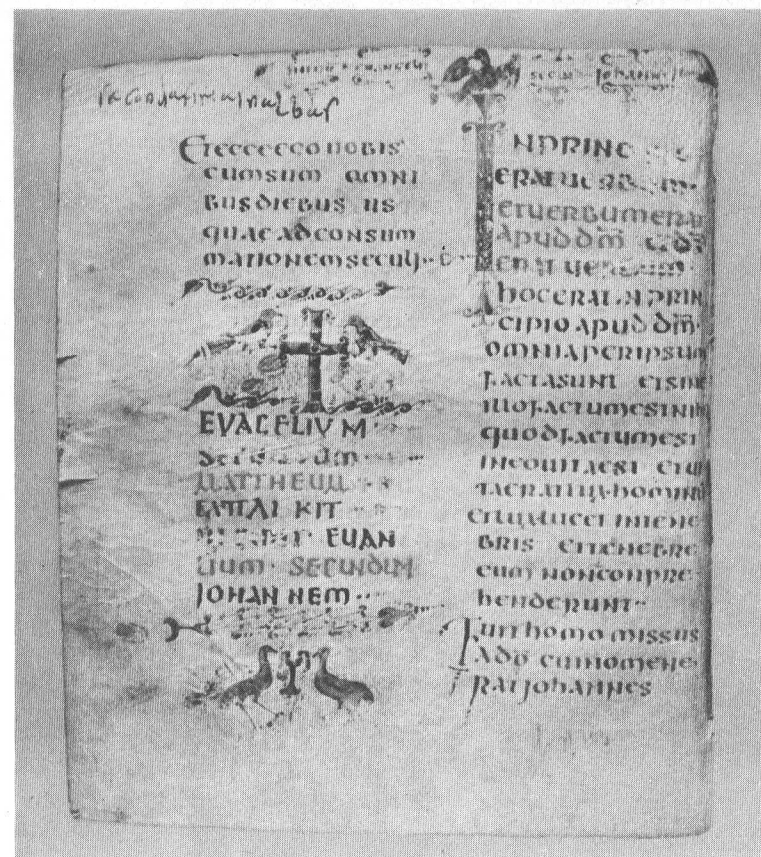 secun Johanne
Et ecce eco uobis
cum sum omni
bus diebus us
quae ad consum
mationem seculi
EVAGELIVM
MATTHEUM
EUAN
LIUM SECUNDUM
JOHANNEM
IN PRINC
ERAT UERBUM
ET UERBUM ERAT
APUD DM̄ ET DS̄
ERAT UERBUM
hoc erat in prin
cipio apud dm̄
omnia per ipsum
facta sunt et sine
illo factum est nih
quod factum est
in eo uita est et ui
ta erat lux hominu
et lux lucet in tene
bris et tenebre
eum non conpre
henderunt
Fuit homo missus
a do cui nomen e
rat johannes